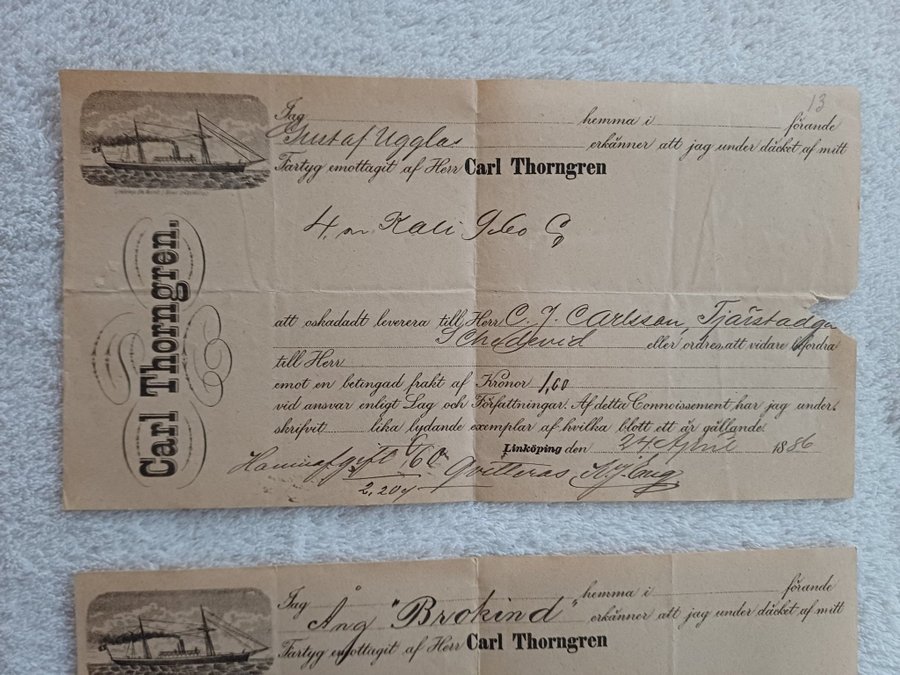 13
Jag hemma i förande
Gustaf Ugglas erkänner att jag under däcket af mitt
Fartyg emottagit af Herr Carl Thorngren
Carl Thorngren.
4 Kali
att oskadadt leverera till Herr C. J. Carlsson, Tjärstad
eller ordres, att vidare befordra
till Herr
emot en betingad frakt af Kronor 1,60
vid ansvar enligt Lag och Författningar. Af detta Connoissement har jag under-
skrifvit lika lydande exemplar af hvilka blott ett är gällande.
Linköping den 24 April 1886
Hamnafgift 60 Qvitteras
2,20
Jag hemma i förande
Ång "Brokind" erkänner att jag under däcket af mitt
Fartyg emottagit af Herr Carl Thorngren